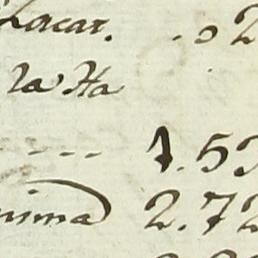 Lacar. . . 02
la Ha
- - - - 1.53
nima 2.72